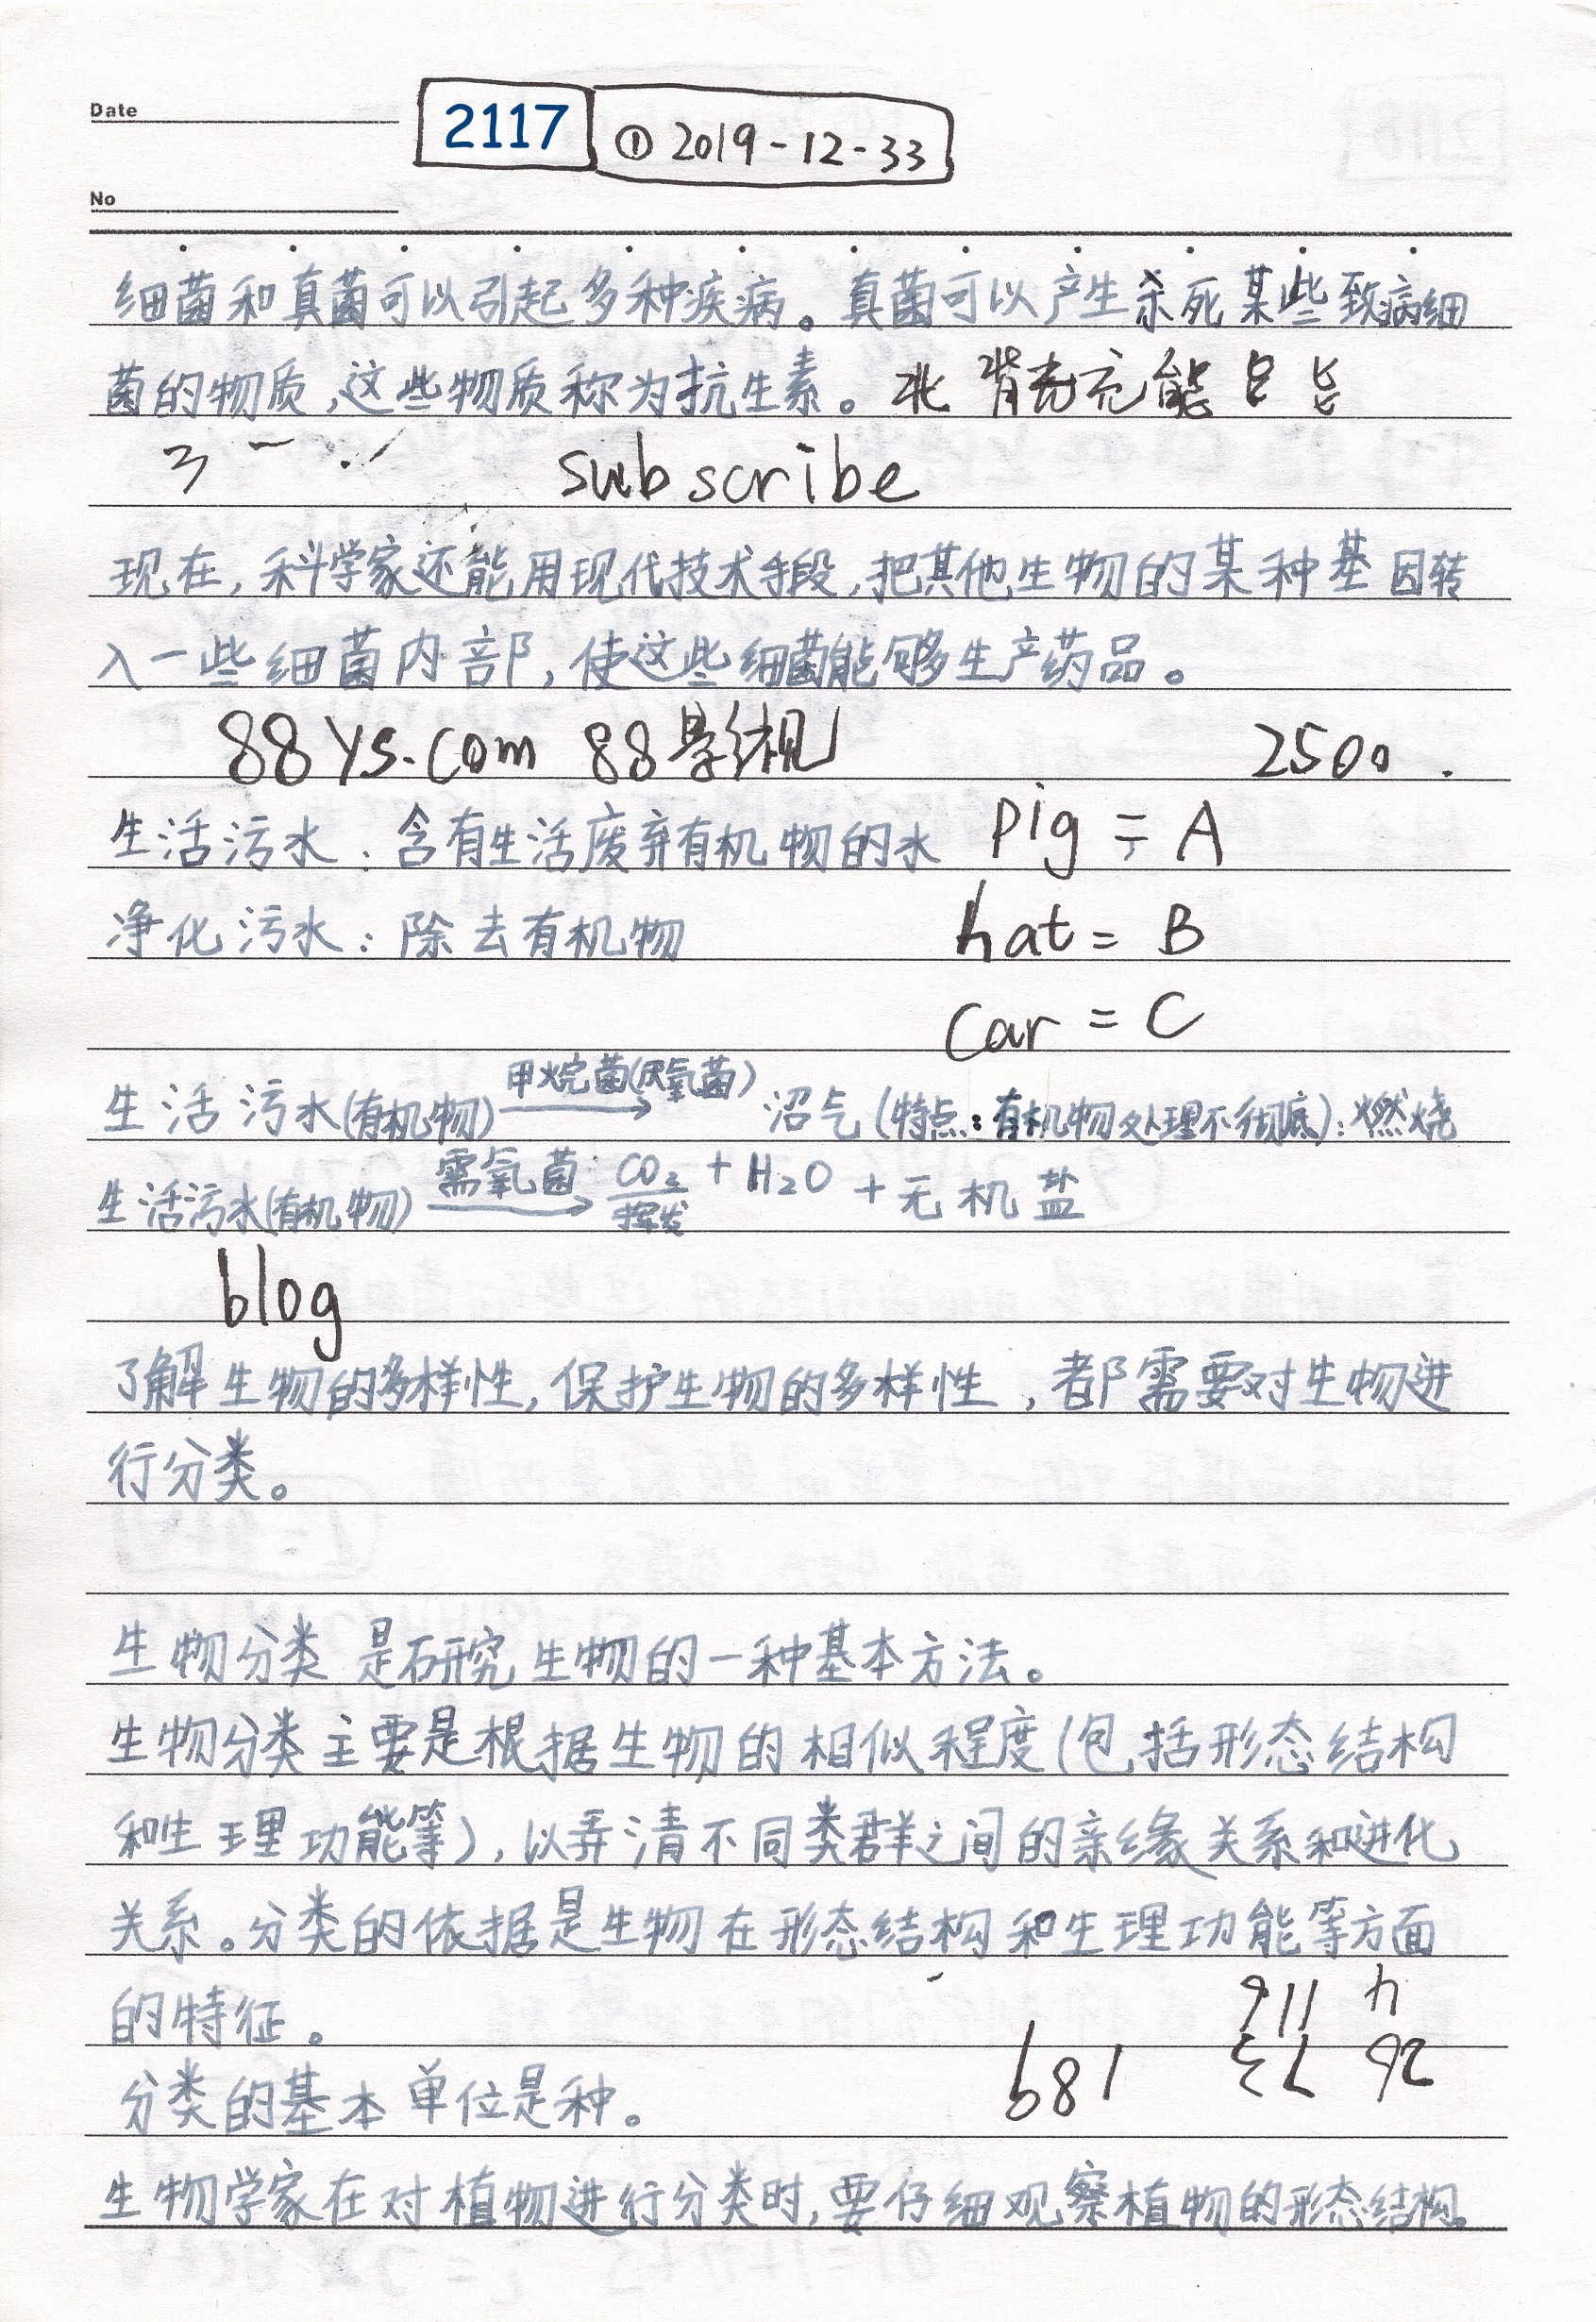 Date
2117 ① 2019-12-33
No
细菌和真菌可以引起多种疾病。真菌可以产生杀死某些致病细
菌的物质,这些物质称为抗生素。北 背 壳 充 能
subscribe
现在,科学家还能用现代技术手段,把其他生物的某种基因转
入一些细菌内部,使这些细菌能够生产药品。
88ys.com 88影视 2500
生活污水:含有生活废弃有机物的水 pig = A
净化污水:除去有机物 hat = B
Car = C
甲烷菌(厌氧菌)
生活污水(有机物) → 沼气(特点:有机物处理不彻底):燃烧
需氧菌
生活污水(有机物) → CO₂ + H₂O + 无机盐
挥发
blog
了解生物的多样性,保护生物的多样性,都需要对生物进
行分类。
生物分类是研究生物的一种基本方法。
生物分类主要是根据生物的相似程度(包括形态结构
和生理功能等),以弄清不同类群之间的亲缘关系和进化
关系。分类的依据是生物在形态结构和生理功能等方面
的特征。
分类的基本单位是种。
生物学家在对植物进行分类时,要仔细观察植物的形态结构。